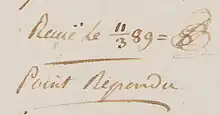 Reçuë le 11/3 89 =
Point Repondu